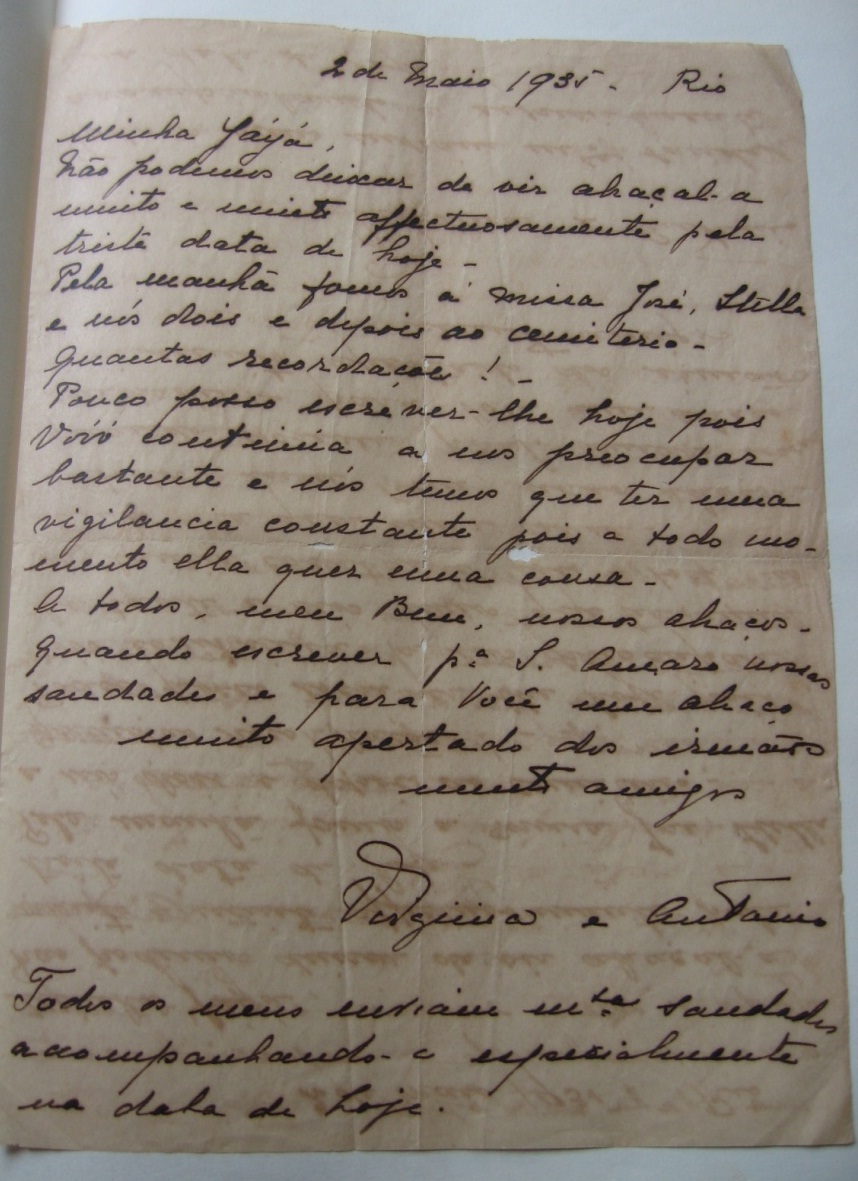 2 de Maio 1935 - Rio
Minha Yáyá,
Não podemos deixar de vir abraçal-a
muito e muito affectuosamente pela
triste data de hoje -
Pela manhã fomos á missa José, Stella
e nós dois e depois ao cemiterio -
Quantas recordações! -
Pouco posso escrever-lhe hoje pois
Vóvó continúa a nos preocupar
bastante e nós temos que ter uma
vigilancia constante pois a todo mo-
mento ella quer uma cousa -
A todos, meu Bem, nossos abraços -
Quando escrever pª S. Amaro nossas
saudades e para Você um abraço
muito apertado dos irmãos
muito amigos
Virginia e Antonio
Todos os meus enviam mtas saudades
acompanhando-a especialmente
na data de hoje.